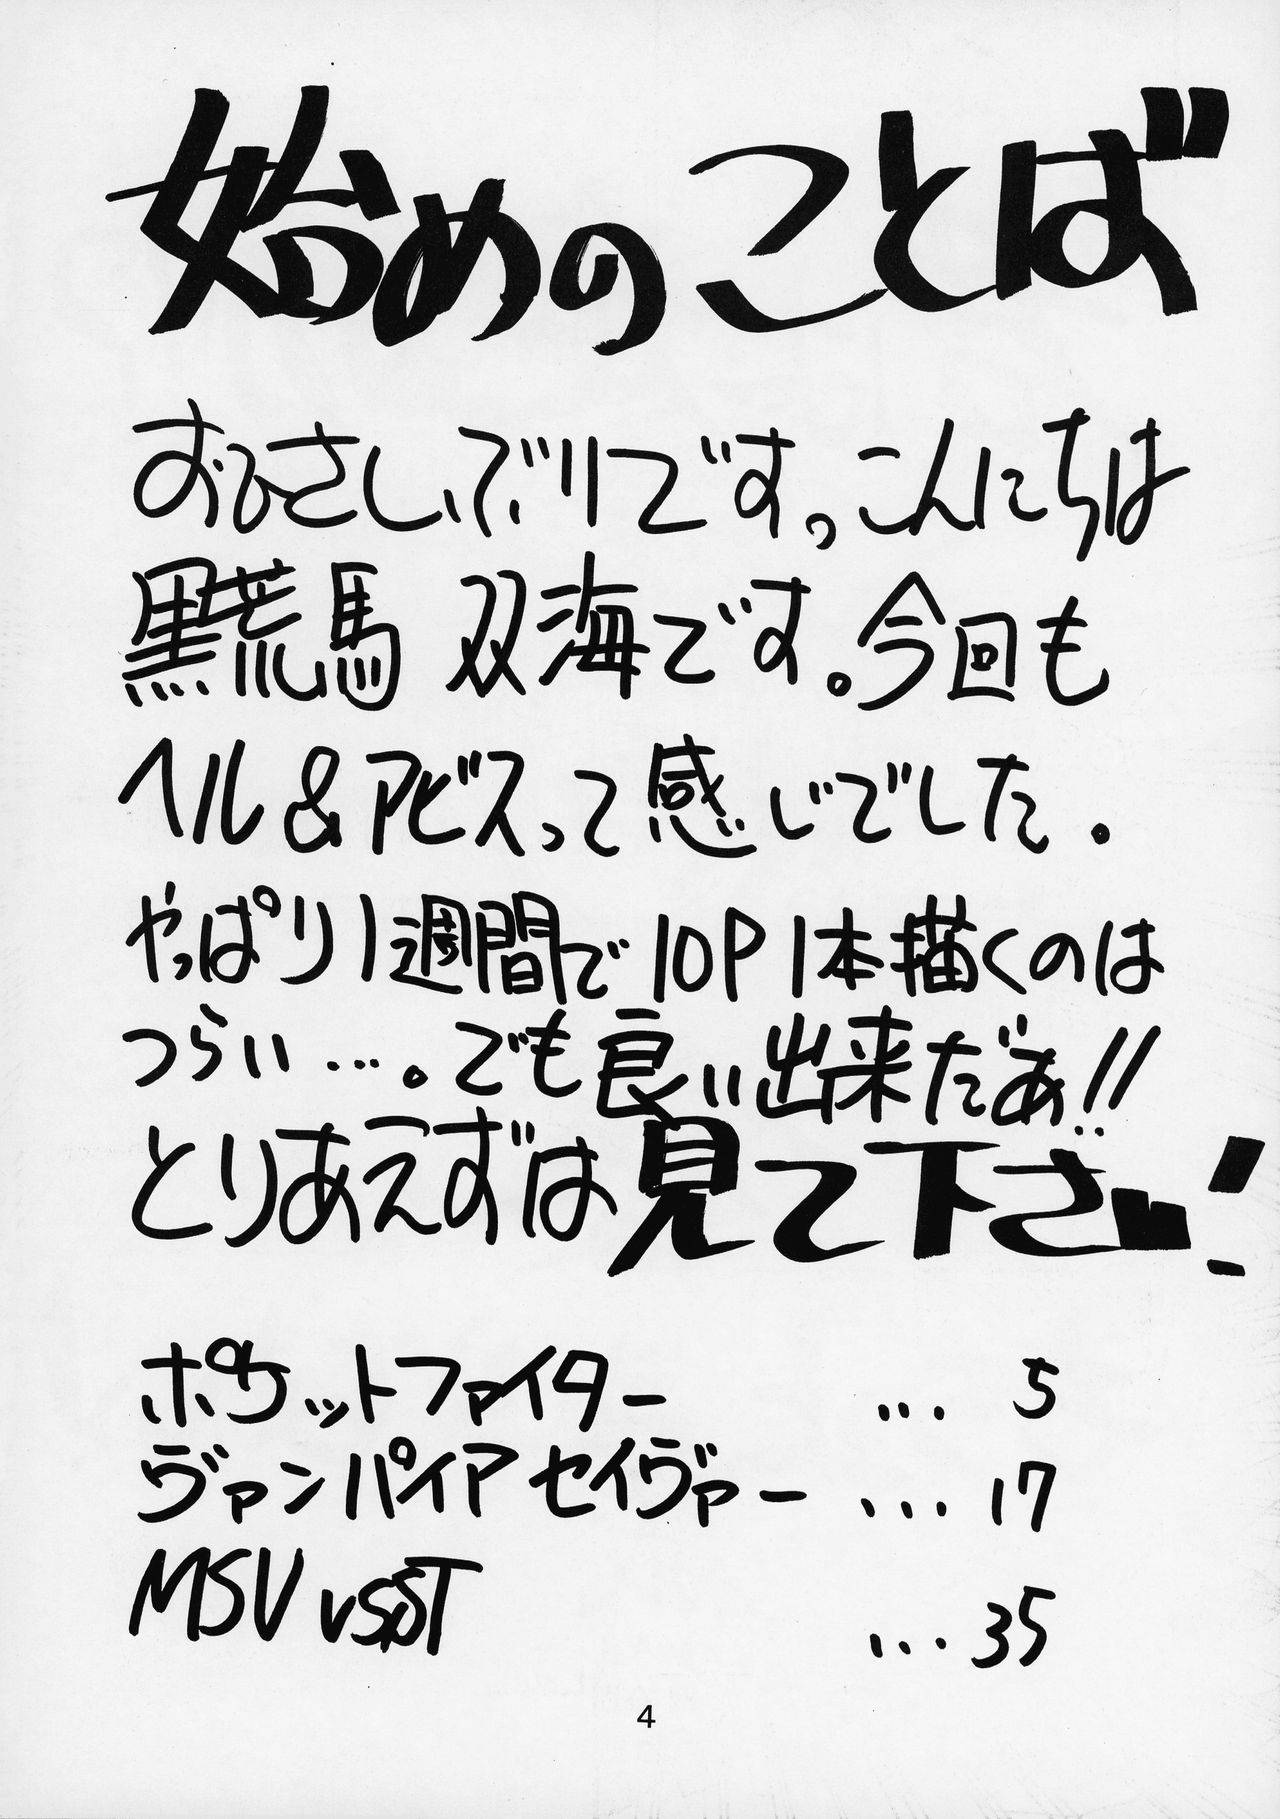 始めのことば
おひさしぶりです。こんにちは
黒荒馬 双海です。今回も
ヘル&アビスって感じでした.
やっぱり1週間で10P1本描くのは
つらい…。でも良い出来だぁ!!
とりあえずは見て下さい!
ポケットファイター ... 5
ヴァンパイアセイヴァー ... 17
MSV vs ST ... 35
4